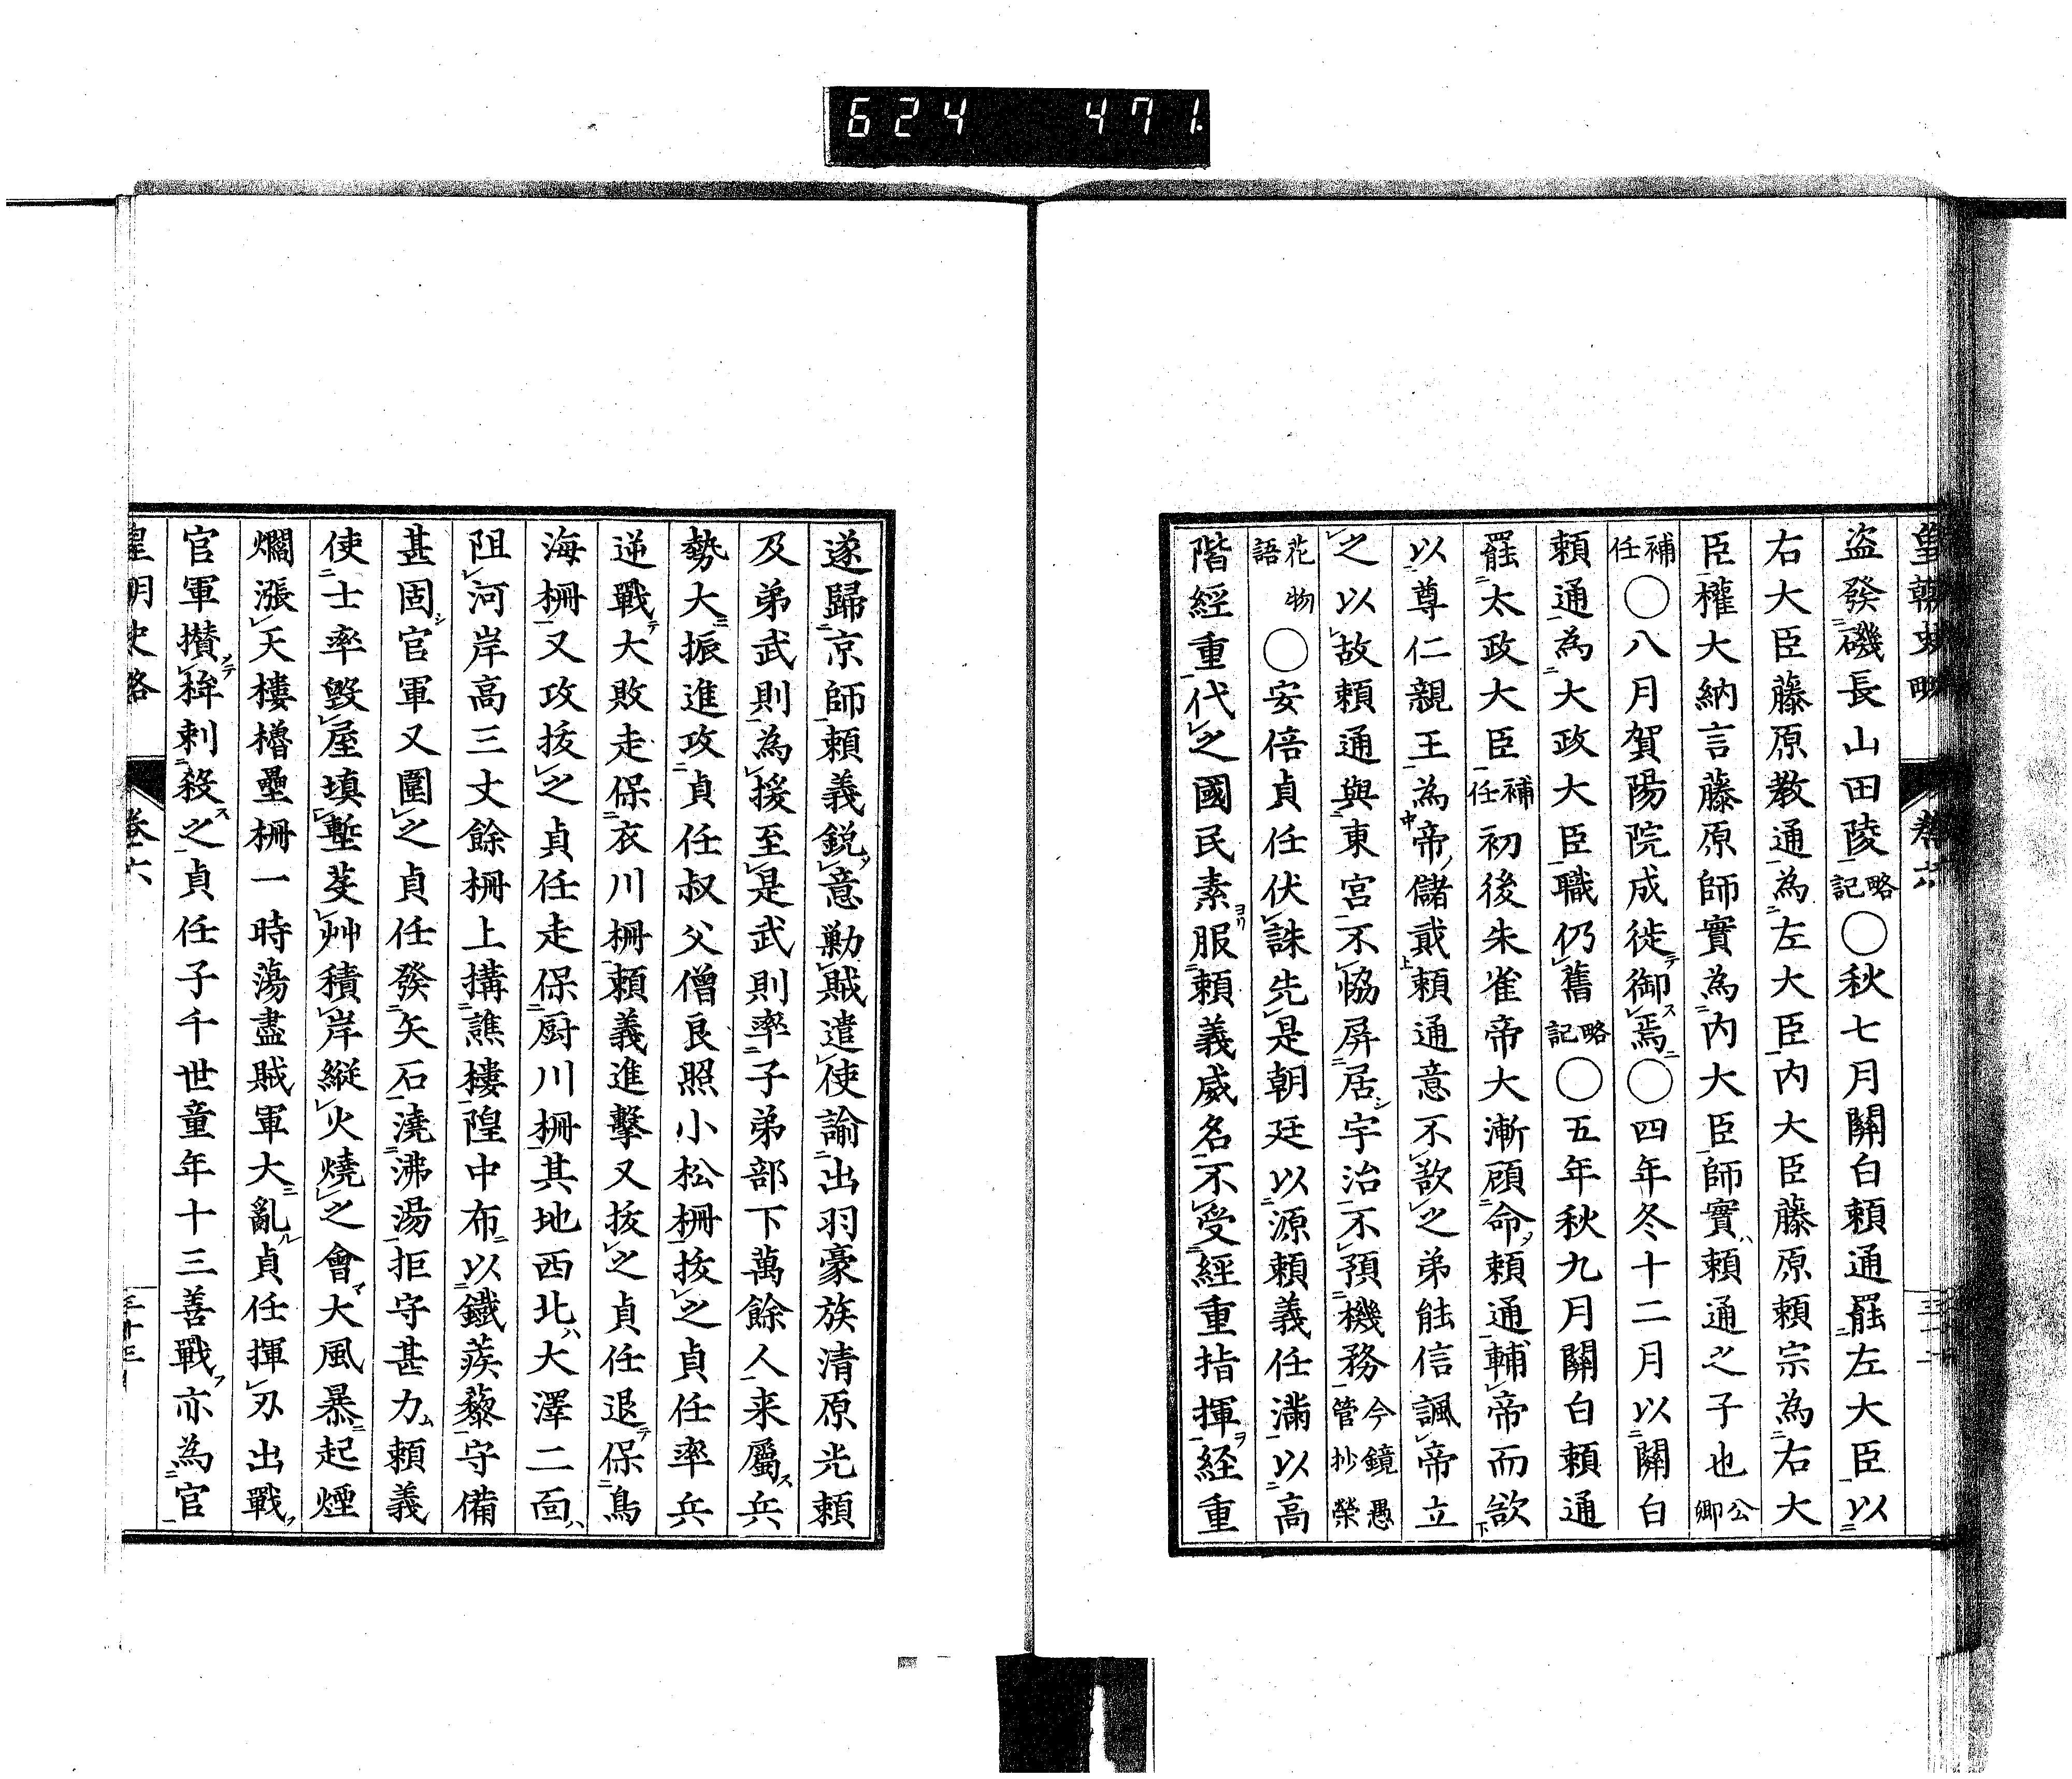 624 471
皇朝史略 卷六
盜發磯長山田陵略記〇秋七月關白頼通罷左大臣以
右大臣藤原教通為左大臣内大臣藤原頼宗為右大
臣權大納言藤原師實為内大臣師實頼通之子也公卿
補任〇八月賀陽院成徙御焉〇四年冬十二月以關白
頼通為大政大臣職仍舊略記〇五年秋九月關白頼通
罷太政大臣補任初後朱雀帝大漸顧命頼通輔帝而欲
以尊仁親王為帝儲貳頼通意不欲之弟能信諷帝立
之以故頼通與東宮不協屏居宇治不預機務今鏡愚管抄榮
花物語〇安倍貞任伏誅先是朝廷以源頼義任滿以高
階經重代之國民素服頼義威名不受經重指揮経重
遂歸京師頼義鋭意勦賊遣使諭出羽豪族清原光頼
及弟武則為援至是武則率子弟部下萬餘人来屬兵
勢大振進攻貞任叔父僧良照小松柵拔之貞任率兵
逆戰大敗走保衣川柵頼義進擊又拔之貞任退保鳥
海柵又攻拔之貞任走保厨川柵其地西北大澤二面
阻河岸高三丈餘柵上搆譙樓隍中布以鐵蒺藜守備
甚固官軍又圍之貞任發矢石澆沸湯拒守甚力頼義
使士率毀屋填塹芟艸積岸縱火燒之會大風暴起煙
爓漲天樓櫓壘柵一時蕩盡賊軍大亂貞任揮刃出戰
官軍攅桙刺殺之貞任子千世童年十三善戰亦為官
皇朝史略 卷六 三十三